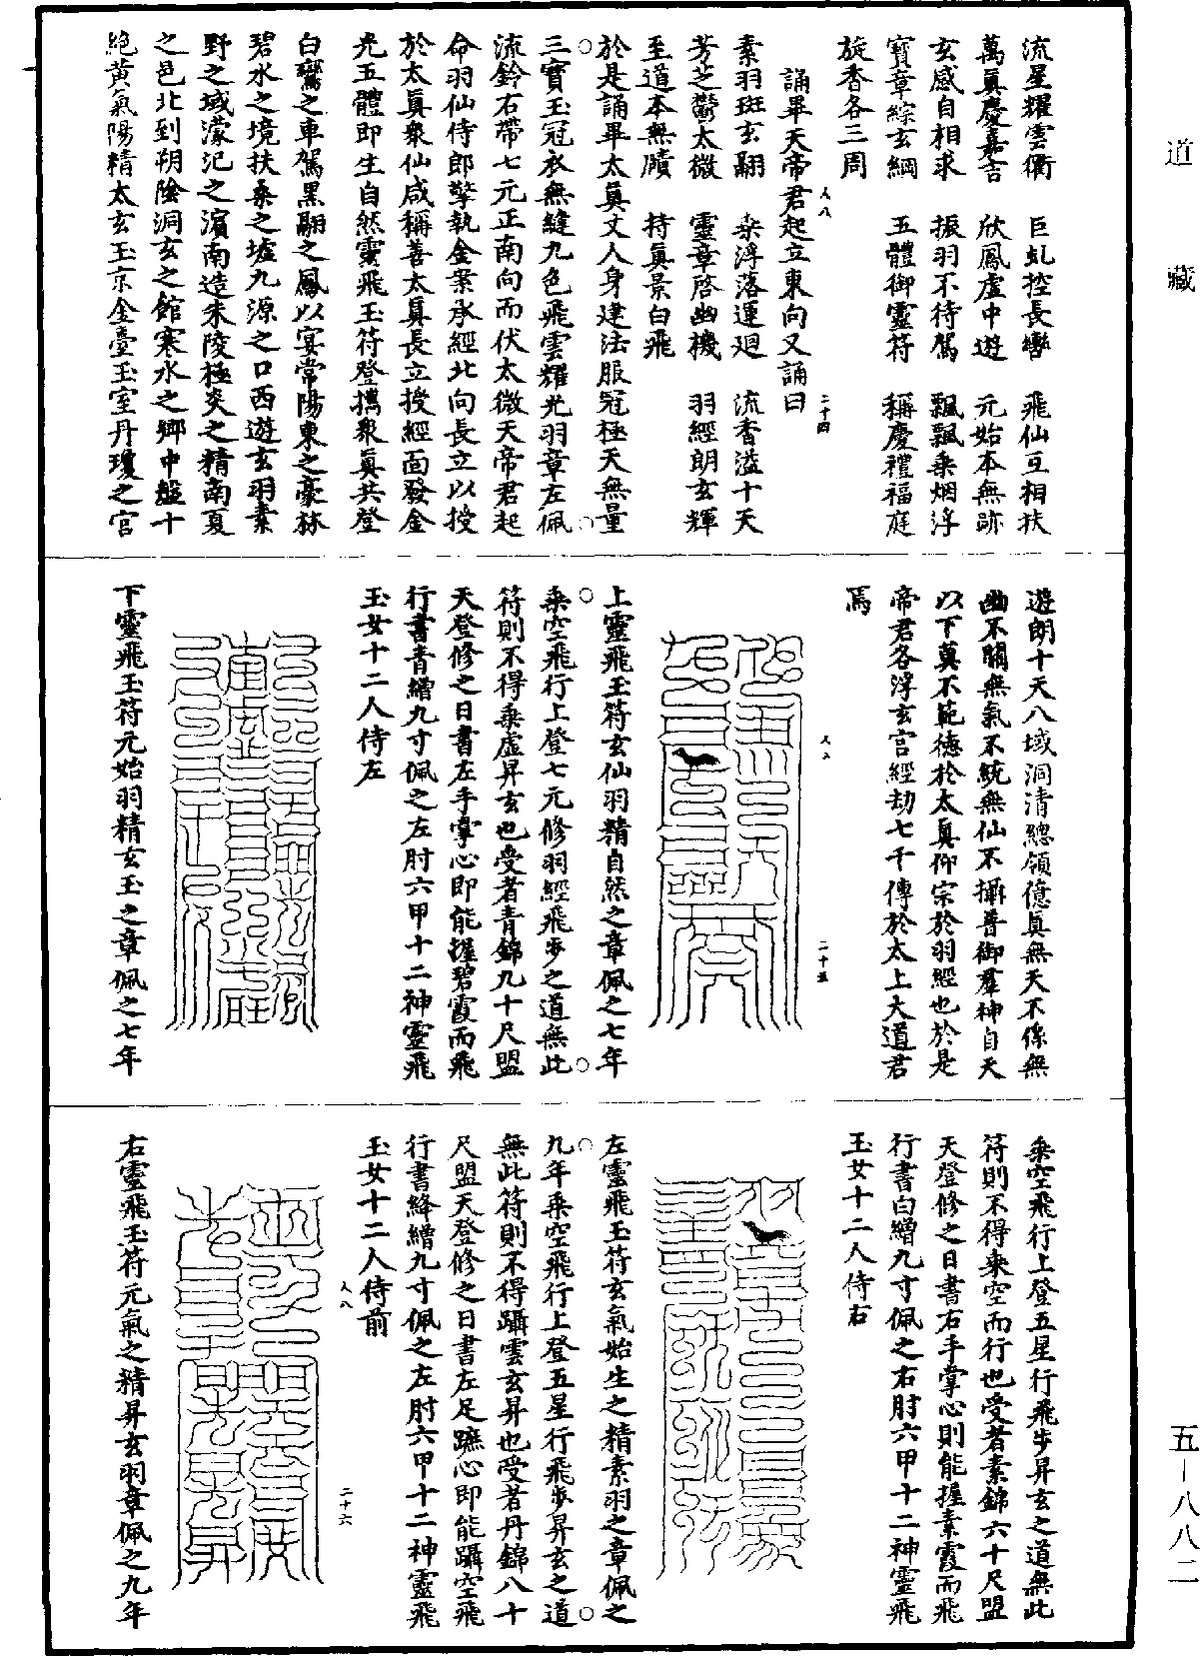 道藏
流星耀雲衢　巨虬控長轡　飛仙互相扶
萬真慶嘉吉　欣鳳虛中遊　元始本無跡
玄感自相求　振羽不待駕　飄飄乘烟浮
寶章綜玄綱　五體御靈符　稱慶禮福庭
旋香各三周
誦畢天帝君起立東向又誦曰
素羽斑玄翮　乘浮落運迴　流香溢十天
芳芝鬱太微　靈章啓幽機　羽經朗玄輝
至道本無隤　持真景白飛
於是誦畢太真丈人身建法服冠極天無量
三寶玉冠衣無縫九色飛雲耀光羽章左佩
流鈴石帶七元正南向而伏太微天帝君起
命羽仙侍郎擎執金案承經北向長立以授
於太真衆仙咸稱善太真長立授經面發金
光五體即生自然靈飛玉符登攜衆真共登
白鸞之車駕黑翮之鳳以宴常陽東之豪林
碧水之境扶桑之墟九源之口西遊玄羽素
野之域濛汜之濱南造朱陵極炎之精南夏
之邑北到朔陰洞玄之館寒水之鄉中盤十
絕黃氣陽精太玄玉京金臺玉室丹瓊之宮
遊朗十天八域洞清總領億真無天不係無
幽不關無氣不統無仙不攝普御羣神自天
以下莫不範德於太真仰宗於羽經也於是
帝君各浮玄宮經劫七千傳於太上大道君
焉
上靈飛玉符玄仙羽精自然之章佩之七年
乘空飛行上登七元修羽經飛步之道無此
符則不得乘虛昇玄也受者青錦九十尺盟
天登修之日書左手掌心即能握碧霞而飛
行書青繒九寸佩之左肘六甲十二神靈飛
玉女十二人侍左
下靈飛玉符元始羽精玄玉之章佩之七年
乘空飛行上登五星行飛步昇玄之道無此
符則不得乘空而行也受者素錦六十尺盟
天登修之日書右手掌心則能握素霞而飛
行書白繒九寸佩之右肘六甲十二神靈飛
玉女十二人侍右
左靈飛玉符玄氣始生之精素羽之章佩之
九年乘空飛行上登五星行飛步昇玄之道
無此符則不得躡雲玄昇也受者丹錦八十
尺盟天登修之日書左足蹠心即能躡空飛
行書絳繒九寸佩之左肘六甲十二神靈飛
玉女十二人侍前
右靈飛玉符元氣之精昇玄羽章佩之九年
人八
二十四
人八
二十五
人八
二十六
五－八八二